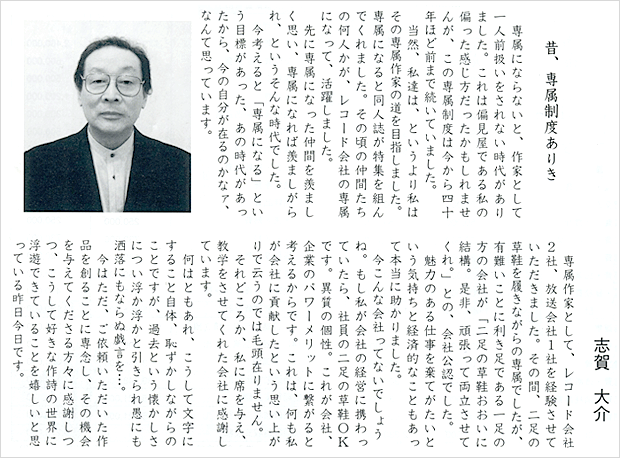 昔、専属制度ありき
志賀　大介
専属にならないと、作家として
一人前扱いをされない時代があり
ました。これは偏見屋である私の
偏った感じ方だったかもしれませ
んが、この専属制度は今から四十
年ほど前まで続いていました。
当然、私達は、というより私は
その専属作家の道を目指しました。
専属になると同人誌が特集を組ん
でくれました。その頃の仲間たち
の何人かが、レコード会社の専属
になって、活躍しました。
先に専属になった仲間を羨まし
く思い、専属になれば羨ましがら
れ、というそんな時代でした。
今考えると「専属になる」とい
う目標があった、あの時代があっ
たから、今の自分が在るのかなァ、
なんて思っています。
専属作家として、レコード会社
２社、放送会社１社を経験させて
いただきました。その間、二足の
草鞋を履きながらの専属でしたが、
有難いことに利き足である一足の
方の会社が「二足の草鞋おおいに
結構。是非、頑張って両立させて
くれ。」との、会社公認でした。
魅力のある仕事を棄てがたいと
いう気持ちと経済的なこともあっ
て本当に助かりました。
今こんな会社ってないでしょう
ね。もし私が会社の経営に携わっ
ていたら、社員の二足の草鞋ＯＫ
です。異質の個性。これが会社、
企業のパワーメリットに繋がると
考えるからです。これは、何も私
が会社に貢献したという思い上が
りで云うのでは毛頭在りません。
それどころか、私に席を与え、
教学をさせてくれた会社に感謝し
ています。
何はともあれ、こうして文字に
すること自体、恥ずかしながらの
ことですが、過去という懐かしさ
につい浮か浮かと引きられ愚にも
洒落にもならぬ戯言を…。
今はただ、ご依頼いただいた作
品を創ることに専念し、その機会
を与えてくださる方々に感謝しつ
つ、こうして好きな作詩の世界に
浮遊できていることを嬉しいと思
っている昨日今日です。